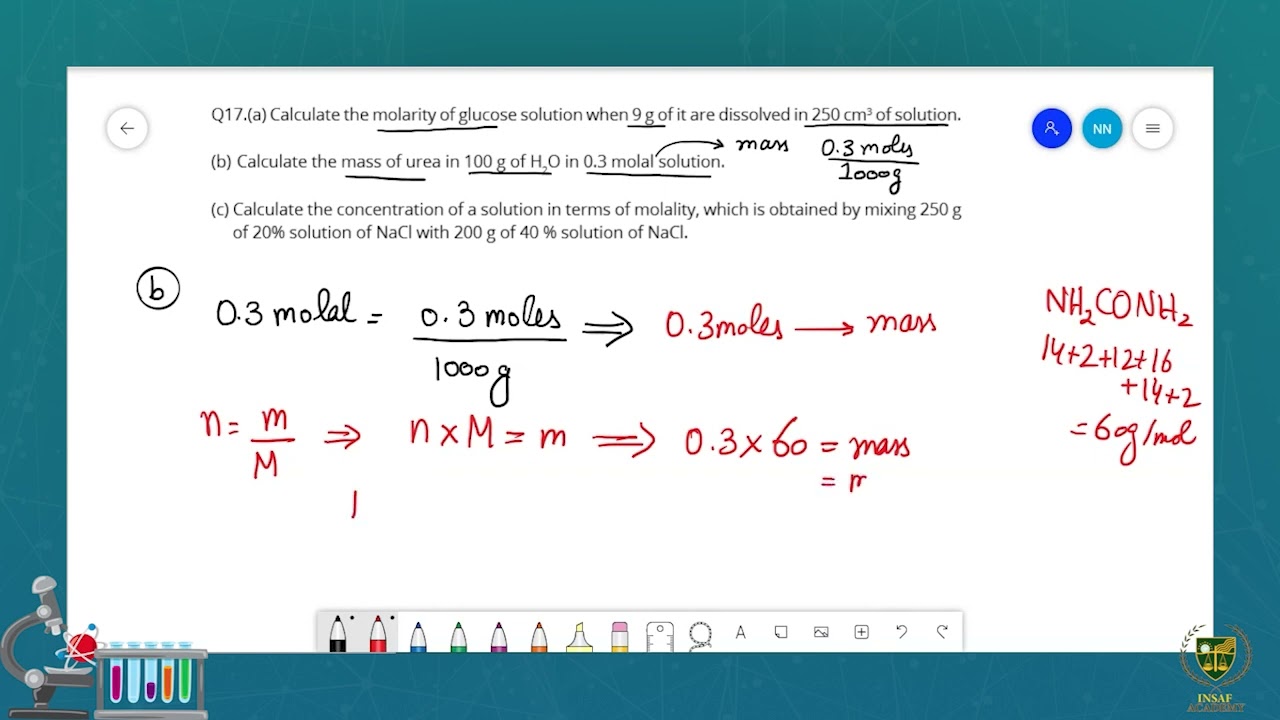 Q17.(a) Calculate the molarity of glucose solution when 9 g of it are dissolved in 250 cm³ of solution.
(b) Calculate the mass of urea in 100 g of H₂O in 0.3 molal solution.
mass
0.3 moles
1000g
(c) Calculate the concentration of a solution in terms of molality, which is obtained by mixing 250 g
of 20% solution of NaCl with 200 g of 40 % solution of NaCl.
NN
b
0.3 molal = 0.3 moles / 1000g ⇒ 0.3moles → mass
NH₂CONH₂
14+2+12+16
+14+2
= 60g/mol
n = m / M ⇒ n × M = m ⇒ 0.3 × 60 = mass
= m
A
INSAF
ACADEMY